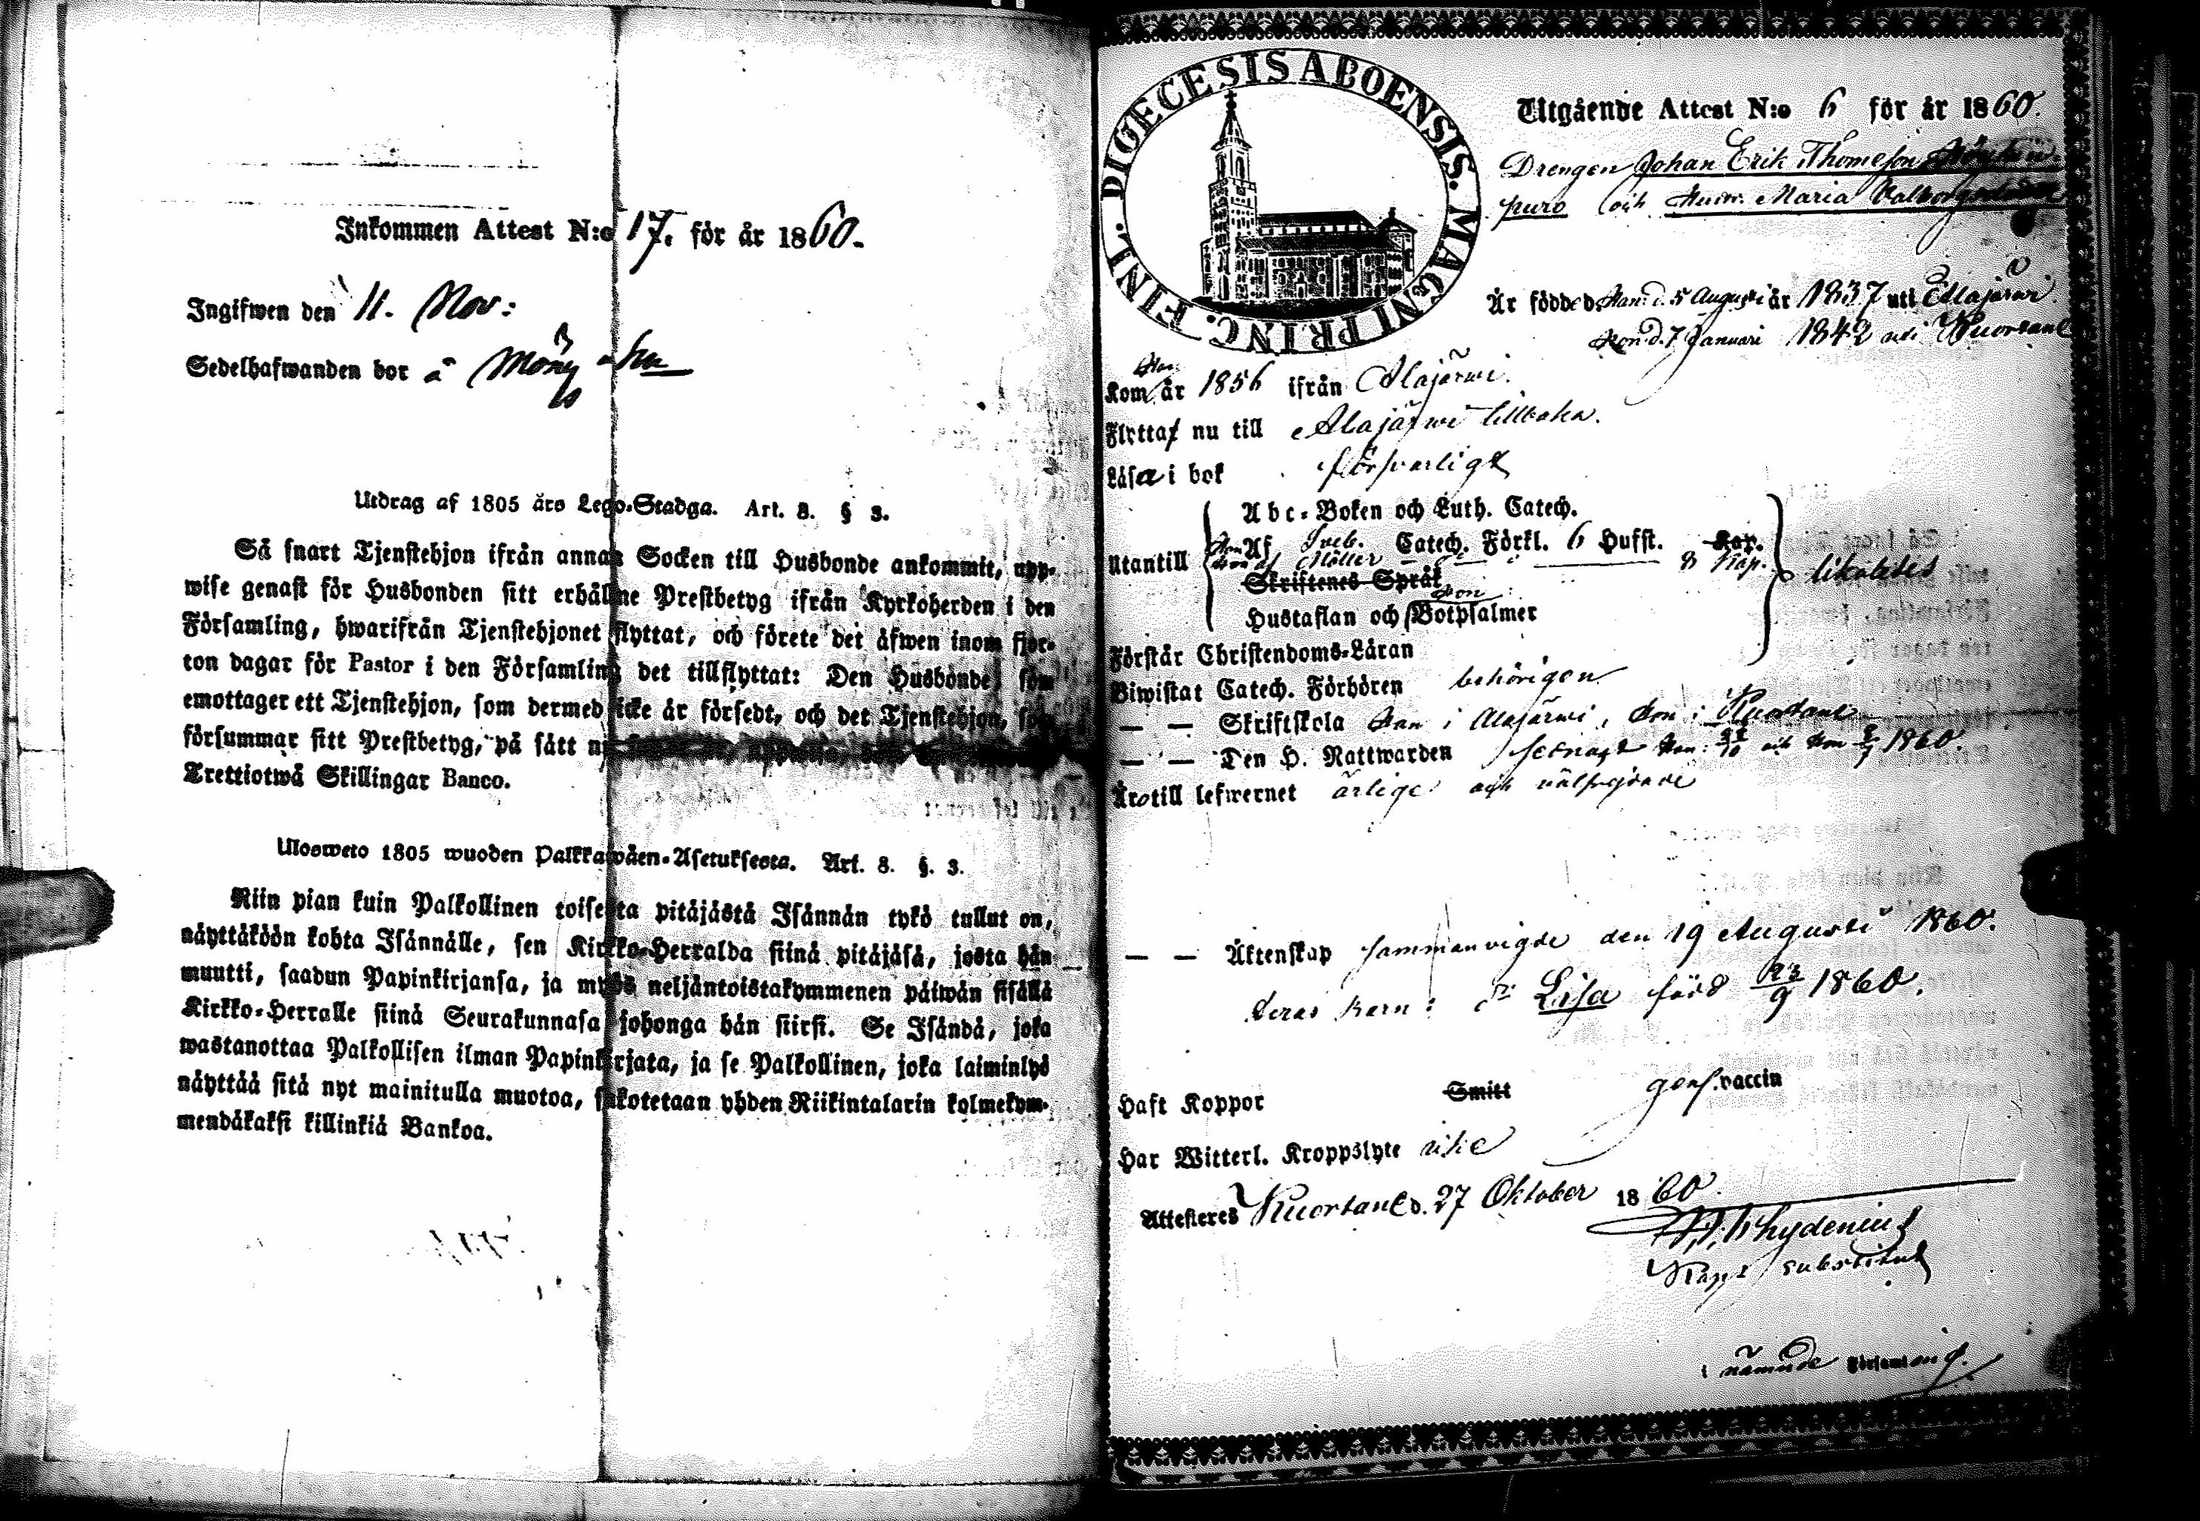 Inkommen Attest N:o 17. för år 1860.
Ingifwen den 11. Nov:
Sedelhafwanden bor å
Utdrag af 1805 års Lego-Stadga. Art. 8. § 3.
Så snart Tjenstehjon ifrån annan Socken till Husbonde ankommit, upp-
wise genast för Husbonden sitt erhållne Prestbetyg ifrån Kyrkoherden i den
Församling, hwarifrån Tjenstehjonet flyttat, och förete det äfwen inom fjor-
ton dagar för Pastor i den Församling det tillflyttat: Den Husbonde, som
emottager ett Tjenstehjon, som dermed icke är försedt, och det Tjenstehjon, som
försummar sitt Prestbetyg, på sätt
Trettiotwå Skillingar Banco.
Ulosweto 1805 wuoden Palkkawäen-Asetuksesta. Art. 8. §. 3.
Niin pian kuin Palkollinen toisesta pitäjästä Isännän tykö tullut on,
näyttäköön kohta Isännälle, sen Kirkko-Herralda siinä pitäjäsä, josta hän
muutti, saadun Papinkirjansa, ja myös neljäntoistakymmenen päiwän sisällä
Kirkko-Herralle siinä Seurakunnasa johonga hän siirsi. Se Isändä, joka
wastanottaa Palkollisen ilman Papinkirjata, ja se Palkollinen, joka laiminlyö
näyttää sitä nyt mainitulla muotoa, sakotetaan yhden Riikintalarin kolmekym-
mendäkaksi killinkiä Bankoa.
DIOECESIS ABOENSIS. MAGNI PRINC. FINL.
Utgående Attest N:o 6 för år 1860.
Drengen Johan Erik Thomesson
puro och Hustr. Maria
Är födde d. Han d. 5 Augusti år 1837 uti Alajärwi.
Hon d. 7 Januari 1842 uti Kuortane
Han
Kom år 1856 ifrån Alajärwi.
Flytta nu till Alajärwi tillbaka.
Läsa i bok försvarligt
Abc-Boken och Luth. Catech.
Utantill Han Af Sveb. Catech. Förkl. 6 Hufst. Kap.
Hon af Möller 8 Kap.
Skriftenes Språk
likaledes
Hon
Hustaflan och Botpsalmer
Förstår Christendoms-Läran
Biwistat Catech. Förhören behörigen
— — Skriftskola Han i Alajärwi, Hon i Kuortane
— — Den H. Nattwarden senast Han och Hon 1860.
Äro till lefwernet ärlige och välfrejdade
— — Äktenskap sammanvigde den 19 Augusti 1860.
deras barn: Lisa född 23/9 1860.
Haft Koppor Smitt genh. vaccin
Har Witterl. Kroppslyte icke
Attesteres Kuortane d. 27 Oktober 1860.
Chydenius
Kapl. substitut
i nämnde Församling.